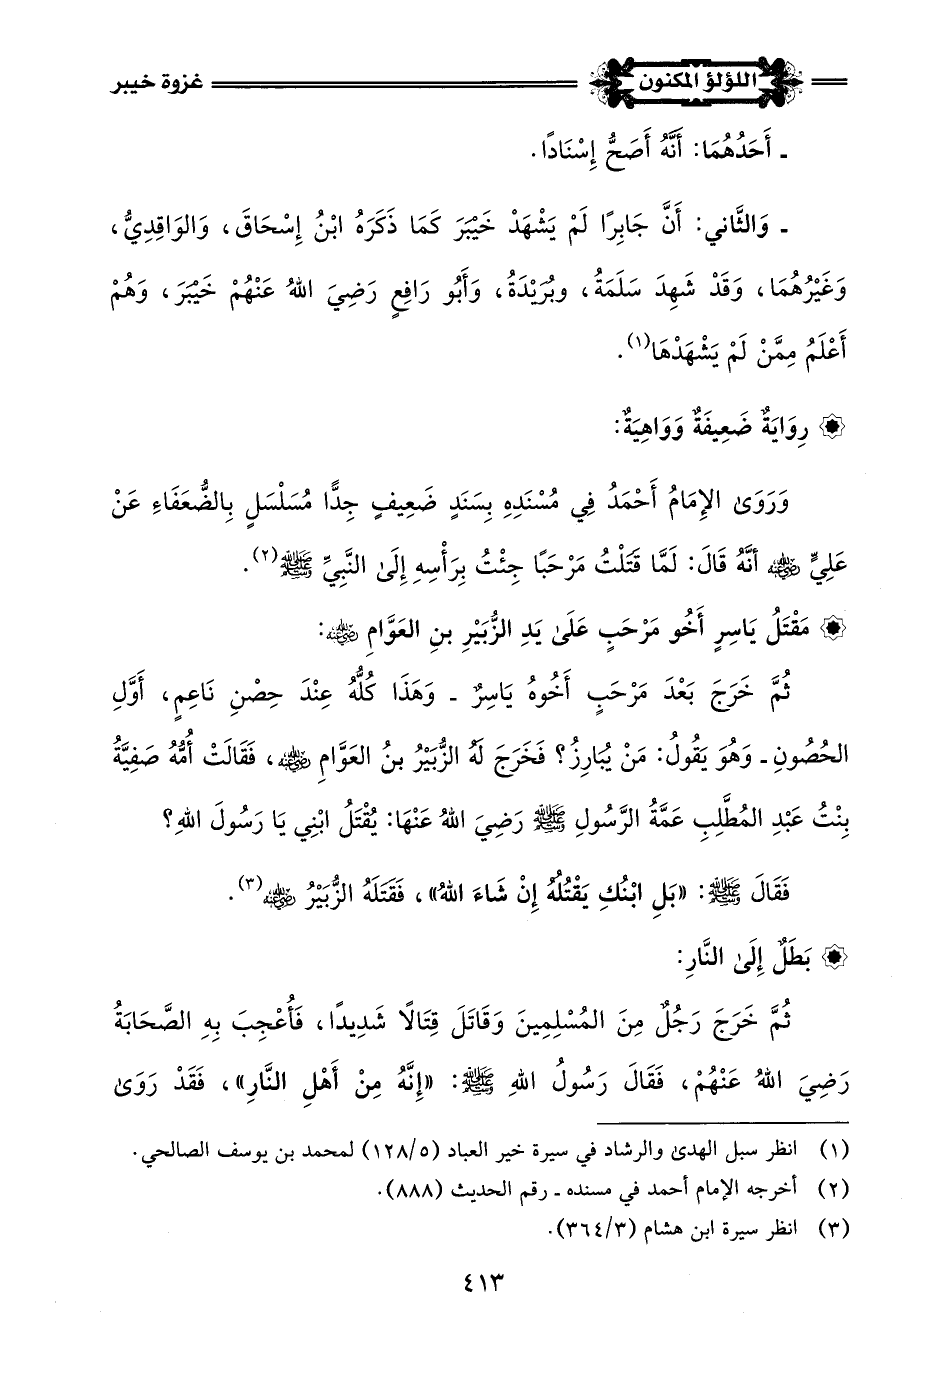 اللؤلؤ المكنون غزوة خيبر
ـ أَحَدُهُمَا: أَنَّهُ أَصَحُّ إِسْنَادًا.
ـ وَالثَّاني: أَنَّ جَابِرًا لَمْ يَشْهَدْ خَيْبَرَ كَمَا ذَكَرَهُ ابْنُ إِسْحَاقَ، وَالوَاقِدِيُّ،
وَغَيْرُهُمَا، وَقَدْ شَهِدَ سَلَمَةُ، وبُرَيْدَةُ، وَأَبُو رَافِعٍ رَضِيَ اللهُ عَنْهُمْ خَيْبَرَ، وَهُمْ
أَعْلَمُ مِمَّنْ لَمْ يَشْهَدْهَا(١).
رِوَايَةٌ ضَعِيفَةٌ وَوَاهِيَةٌ:
وَرَوَىٰ الإِمَامُ أَحْمَدُ فِي مُسْنَدِهِ بِسَنَدٍ ضَعِيفٍ جِدًّا مُسَلْسَلٍ بِالضُّعَفَاءِ عَنْ
عَلِيٍّ رضي الله عنه أَنَّهُ قَالَ: لَمَّا قَتَلْتُ مَرْحَبًا جِئْتُ بِرَأْسِهِ إِلَىٰ النَّبِيِّ ﷺ(٢).
مَقْتَلُ يَاسِرٍ أَخُو مَرْحَبٍ عَلَىٰ يَدِ الزُّبَيْرِ بنِ العَوَّامِ رضي الله عنه:
ثُمَّ خَرَجَ بَعْدَ مَرْحَبٍ أَخُوهُ يَاسِرٌ ـ وَهَذَا كُلُّهُ عِنْدَ حِصْنِ نَاعِمٍ، أَوَّلِ
الحُصُونِ ـ وَهُوَ يَقُولُ: مَنْ يُبَارِزُ؟ فَخَرَجَ لَهُ الزُّبَيْرُ بنُ العَوَّامِ رضي الله عنه، فَقَالَتْ أُمُّهُ صَفِيَّةُ
بِنْتُ عَبْدِ المُطَّلِبِ عَمَّةُ الرَّسُولِ ﷺ رَضِيَ اللهُ عَنْهَا: يُقْتَلُ ابْنِي يَا رَسُولَ اللهِ؟
فَقَالَ ﷺ: «بَلِ ابْنُكِ يَقْتُلُهُ إِنْ شَاءَ اللهُ»، فَقَتَلَهُ الزُّبَيْرُ رضي الله عنه(٣).
بَطَلٌ إِلَىٰ النَّارِ:
ثُمَّ خَرَجَ رَجُلٌ مِنَ المُسْلِمِينَ وَقَاتَلَ قِتَالًا شَدِيدًا، فَأُعْجِبَ بِهِ الصَّحَابَةُ
رَضِيَ اللهُ عَنْهُمْ، فَقَالَ رَسُولُ اللهِ ﷺ: «إِنَّهُ مِنْ أَهْلِ النَّارِ»، فَقَدْ رَوَىٰ
(١) انظر سبل الهدىٰ والرشاد في سيرة خير العباد (١٢٨/٥) لمحمد بن يوسف الصالحي.
(٢) أخرجه الإمام أحمد في مسنده ـ رقم الحديث (٨٨٨).
(٣) انظر سيرة ابن هشام (٣٦٤/٣).
٤١٣